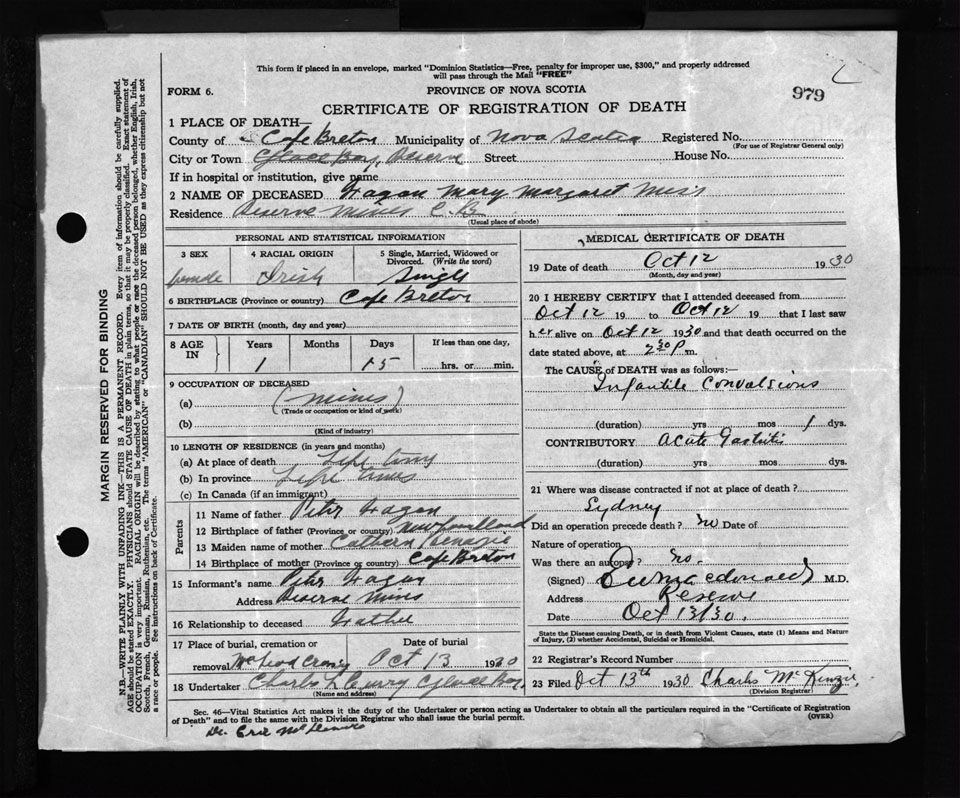 This form if placed in an envelope, marked "Dominion Statistics—Free, penalty for improper use, $300," and properly addressed
will pass through the Mail "FREE"
FORM 6.
PROVINCE OF NOVA SCOTIA
979
CERTIFICATE OF REGISTRATION OF DEATH
1 PLACE OF DEATH—
County of Cape Breton Municipality of Nova Scotia Registered No.
(For use of Registrar General only)
City or Town Glace Bay, Reserve Street House No.
If in hospital or institution, give name
2 NAME OF DECEASED Fagan Mary Margaret Miss
Residence Reserve Mines C.B.
(Usual place of abode)
PERSONAL AND STATISTICAL INFORMATION
3 SEX 4 RACIAL ORIGIN 5 Single, Married, Widowed or
Divorced. (Write the word)
female Irish Single
6 BIRTHPLACE (Province or country) Cape Breton
7 DATE OF BIRTH (month, day and year)
8 AGE IN Years Months Days If less than one day,
1 15 hrs. or min.
9 OCCUPATION OF DECEASED
(a)
(Trade or occupation or kind of work)
(b)
(Kind of industry)
10 LENGTH OF RESIDENCE (in years and months)
(a) At place of death Life time
(b) In province Life time
(c) In Canada (if an immigrant)
Parents
11 Name of father Peter Fagan
12 Birthplace of father (Province or country) Newfoundland
13 Maiden name of mother
14 Birthplace of mother (Province or country) Cape Breton
15 Informant's name Peter Fagan
Address Reserve Mines
16 Relationship to deceased Father
17 Place of burial, cremation or Date of burial
removal McLeod Crossing Oct 13 1930
18 Undertaker Charles L Curry Glace Bay
(Name and address)
MEDICAL CERTIFICATE OF DEATH
19 Date of death Oct 12 1930
(Month, day and year)
20 I HEREBY CERTIFY that I attended deceased from
Oct 12 19 to Oct 12 19 that I last saw
her alive on Oct 12 1930 and that death occurred on the
date stated above, at 2 30 P m.
The CAUSE of DEATH was as follows:—
Infantile Convulsions
(duration) yrs mos 1 dys.
CONTRIBUTORY Acute Gastritis
(duration) yrs. mos. dys.
21 Where was disease contracted if not at place of death?
Sydney
Did an operation precede death? no Date of
Nature of operation
Was there an autopsy? no.
(Signed) M.D.
Address Reserve
Date Oct 13/30.
State the Disease causing Death, or in death from Violent Causes, state (1) Means and Nature
of Injury, (2) whether Accidental, Suicidal or Homicidal.
22 Registrar's Record Number
23 Filed Oct 13th 1930 Charles McKenzie
(Division Registrar)
Sec. 46—Vital Statistics Act makes it the duty of the Undertaker or person acting as Undertaker to obtain all the particulars required in the "Certificate of Registration
of Death" and to file the same with the Division Registrar who shall issue the burial permit.
(OVER)
Dr. Eric
MARGIN RESERVED FOR BINDING
N.B.—WRITE PLAINLY WITH UNFADING INK—THIS IS A PERMANENT RECORD. Every item of information should be carefully supplied.
AGE should be stated EXACTLY. PHYSICIANS should STATE CAUSE OF DEATH in plain terms, so that it may be properly classified. Exact statement of
OCCUPATION is very important. RACIAL ORIGIN will be described by stating to what people or race the deceased person belonged, whether English, Irish,
Scotch, French, German, Russian, Ruthenian, etc. The terms "AMERICAN" or "CANADIAN" SHOULD NOT BE USED as they express citizenship but not
a race or people. See instructions on back of Certificate.